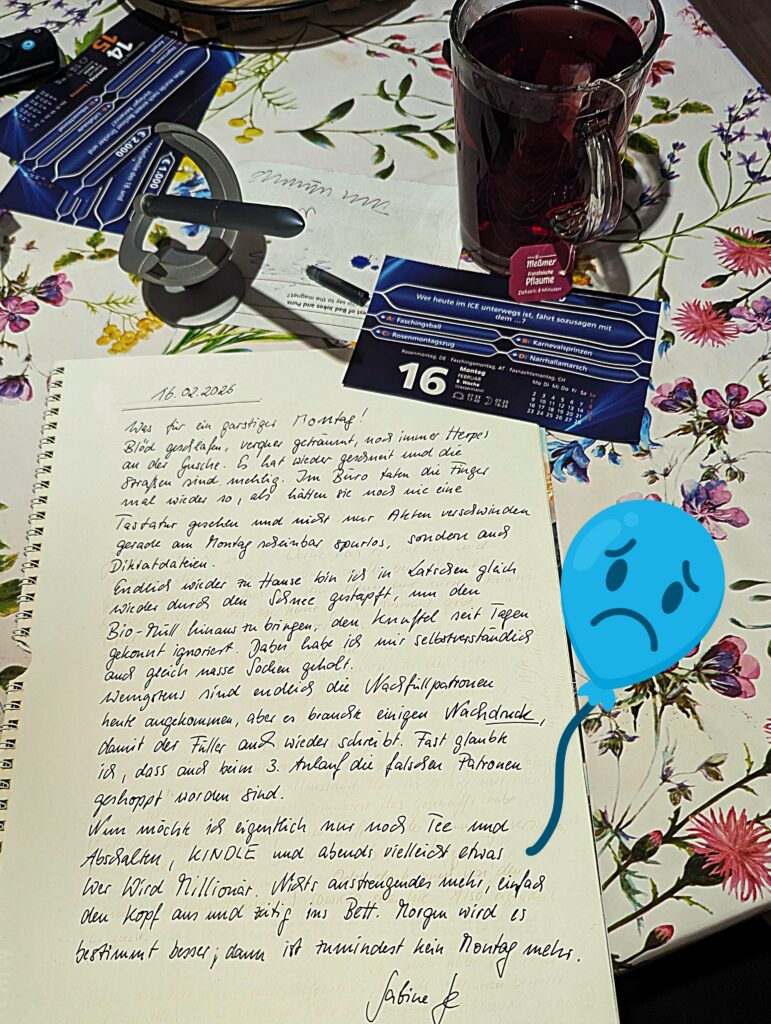 14
15
€ 2.000
€ 1.000
Meßmer
Französische
Pflaume
Ziehzeit: 8 Minuten
Wer heute im ICE unterwegs ist, fährt sozusagen mit
dem ...?
A: Faschingsball
B: Karnevalsprinzen
C: Rosenmontagszug
D: Narrhallamarsch
Rosenmontag, DE Faschingsmontag, AT Fasnachtsmontag, CH
16
Montag
FEBRUAR
8. Woche
Wassermann
Mo Di Mi Do Fr Sa So
1
2 3 4 5 6 7 8
9 10 11 12 13 14 15
16 17 18 19 20 21 22
23 24 25 26 27 28
est of Bad Jokes and Puns
lip say to the magnet?
16.02.2026
Was für ein garstiger Montag!
Blöd geschlafen, verquer geträumt, noch immer Herpes
an der Gusche. Es hat wieder geschneit und die
Straßen sind mehlig. Im Büro taten die Finger
mal wieder so, als hätten sie noch nie eine
Tastatur gesehen und nicht nur Akten verschwinden
gerade am Montag scheinbar spurlos, sondern auch
Diktatdateien.
Endlich wieder zu Hause bin ich in Latschen gleich
wieder durch den Schnee gestapft, um den
Bio-Müll hinaus zu bringen, den Knuffel seit Tagen
gekonnt ignoriert. Dabei habe ich mir selbstverständlich
auch gleich nasse Socken geholt.
Wenigstens sind endlich die Nachfüllpatronen
heute angekommen, aber es brauchte einigen Nachdruck,
damit der Füller auch wieder schreibt. Fast glaubte
ich, dass auch beim 3. Anlauf die falschen Patronen
geshoppt worden sind.
Nun möchte ich eigentlich nur noch Tee und
Abschalten, KINDLE und abends vielleicht etwas
Wer Wird Millionär. Nichts anstrengendes mehr, einfach
den Kopf aus und zeitig ins Bett. Morgen wird es
bestimmt besser; dann ist zumindest kein Montag mehr.
Sabine